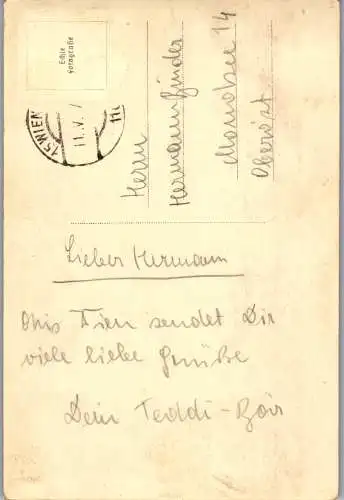 Echte
Fotografie
WIEN
11.V.
Herrn
Hermann Binder
Mondsee 14
Oberöst.
Lieber Hermann
Aus Wien sendet Dir
viele liebe Grüße
Dein Teddi-Bär